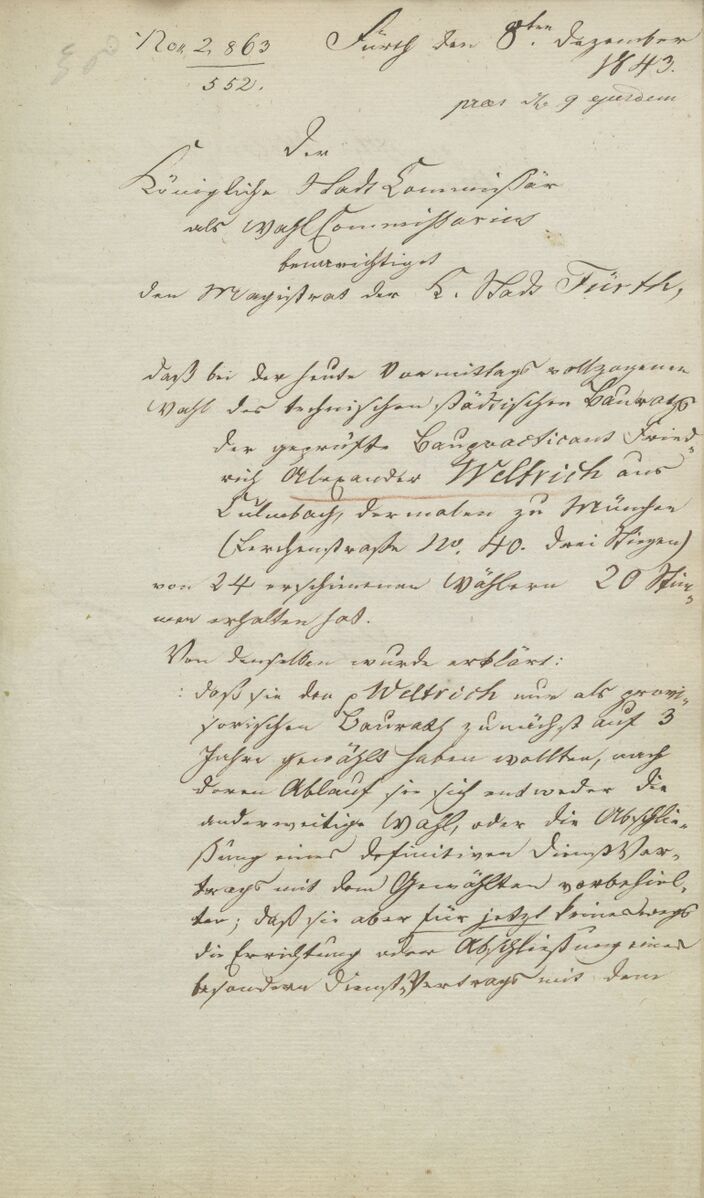 Nor. 2,863
552.
Fürth den 8ten Dezember
1843.
præs. d. 9 ejusdem
Der
Königliche Stadt Commissär
als Wahl Commissarius
benachrichtiget
den Magistrat der K. Stadt Fürth,
daß bei der heute Vormittags vollzogenen
Wahl des technischen städtischen Bauraths
der geprüfte Baupracticant Fried-
rich Alexander Weltrich aus
Culmbach, dermalen zu München
(Lerchenstraße No. 40. drei Stiegen)
von 24 erschienenen Wählern 20 Stim-
men erhalten hat.
Von denselben wurde erklärt:
: daß sie den p Weltrich nur als provi-
sorischen Baurath zunächst auf 3
Jahre gewählt haben wollten, nach
deren Ablauf sie sich entweder die
anderweitige Wahl, oder die Abschlie-
ßung eines definitiven Dienst Ver-
trags mit dem Gewählten vorbehiel-
ten; daß sie aber für jetzt keineswegs
die Errichtung oder Abschließung eines
besondern Dienst-Vertrags mit dem